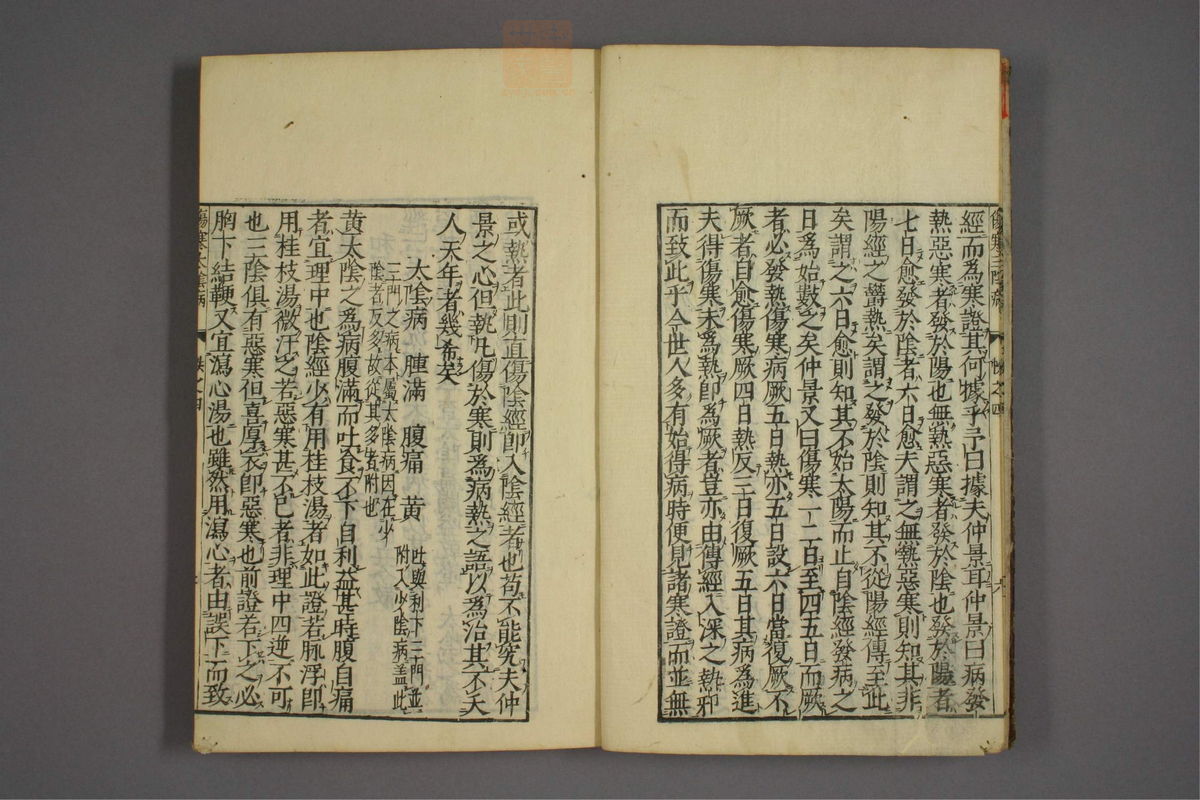 傷寒三陰病
卷之四
經而爲寒證其何據乎予曰據夫仲景耳仲景曰病發
熱惡寒者發於陽也無熱惡寒者發於陰也發於陽者
七日愈發於陰者六日愈夫謂之無熱惡寒則知其非
陽經之欝熱矣謂之發於陰則知其不從陽經傳至此
矣謂之六日愈則知其不始太陽而止自陰經發病之
日爲始數之矣仲景又曰傷寒一二日至四五日而厥
者必發熱傷寒病厥五日熱亦五日設六日當復厥不
厥者自愈傷寒厥四日熱反三日復厥五日其病爲進
夫得傷寒未爲熱卽爲厥者豈亦由傳經入深之熱邪
而致此乎今世人多有始得病時便見諸寒證而並無
或熱者此則直傷陰經卽入陰經者也苟不能究夫仲
景之心但執凡傷於寒則爲病熱之語以爲治其不夭
人天年者幾希矣
太陰病 腫滿 腹痛 黃 吐與利下三門並附入少陰病盖此
三門之病本屬太陰病因在少陰者反多故從其多者附也
黃太陰之爲病腹滿而吐食不下自利益甚時腹自痛
者宜理中也陰經少有用桂枝湯者如此證若脉浮卽
用桂枝湯微汗之若惡寒甚不已者非理中四逆不可
也三陰俱有惡寒但喜厚衣卽惡寒也前證若下之必
胸下結鞕又宜瀉心湯也雖然用瀉心者由誤下而致
傷寒太陰病